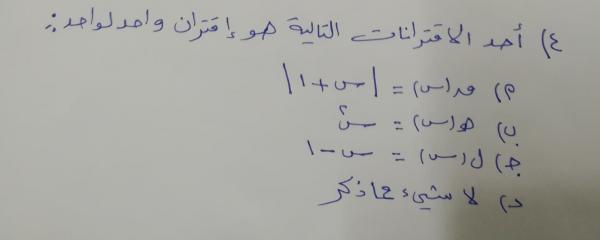 ٤) أحد الاقترانات التالية هو إقتران واحد لواحد:
م) ق(س) = |س + ١|
ب) هـ(س) = س٢
ج) ل(س) = س - ١
د) لا شيء مما ذكر